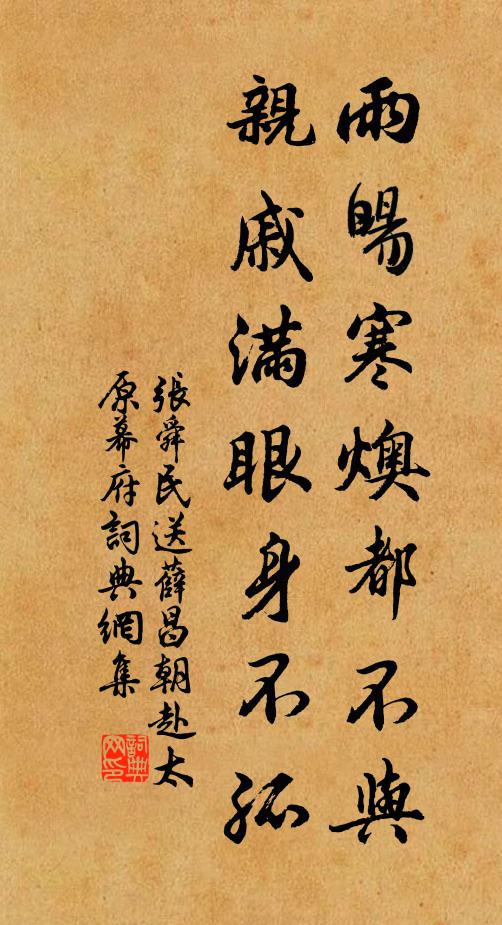 雨暘寒燠都不與
親戚滿眼身不孤
張舜民送薛昌朝赴太
原幕府詞典網集
詞典
网印